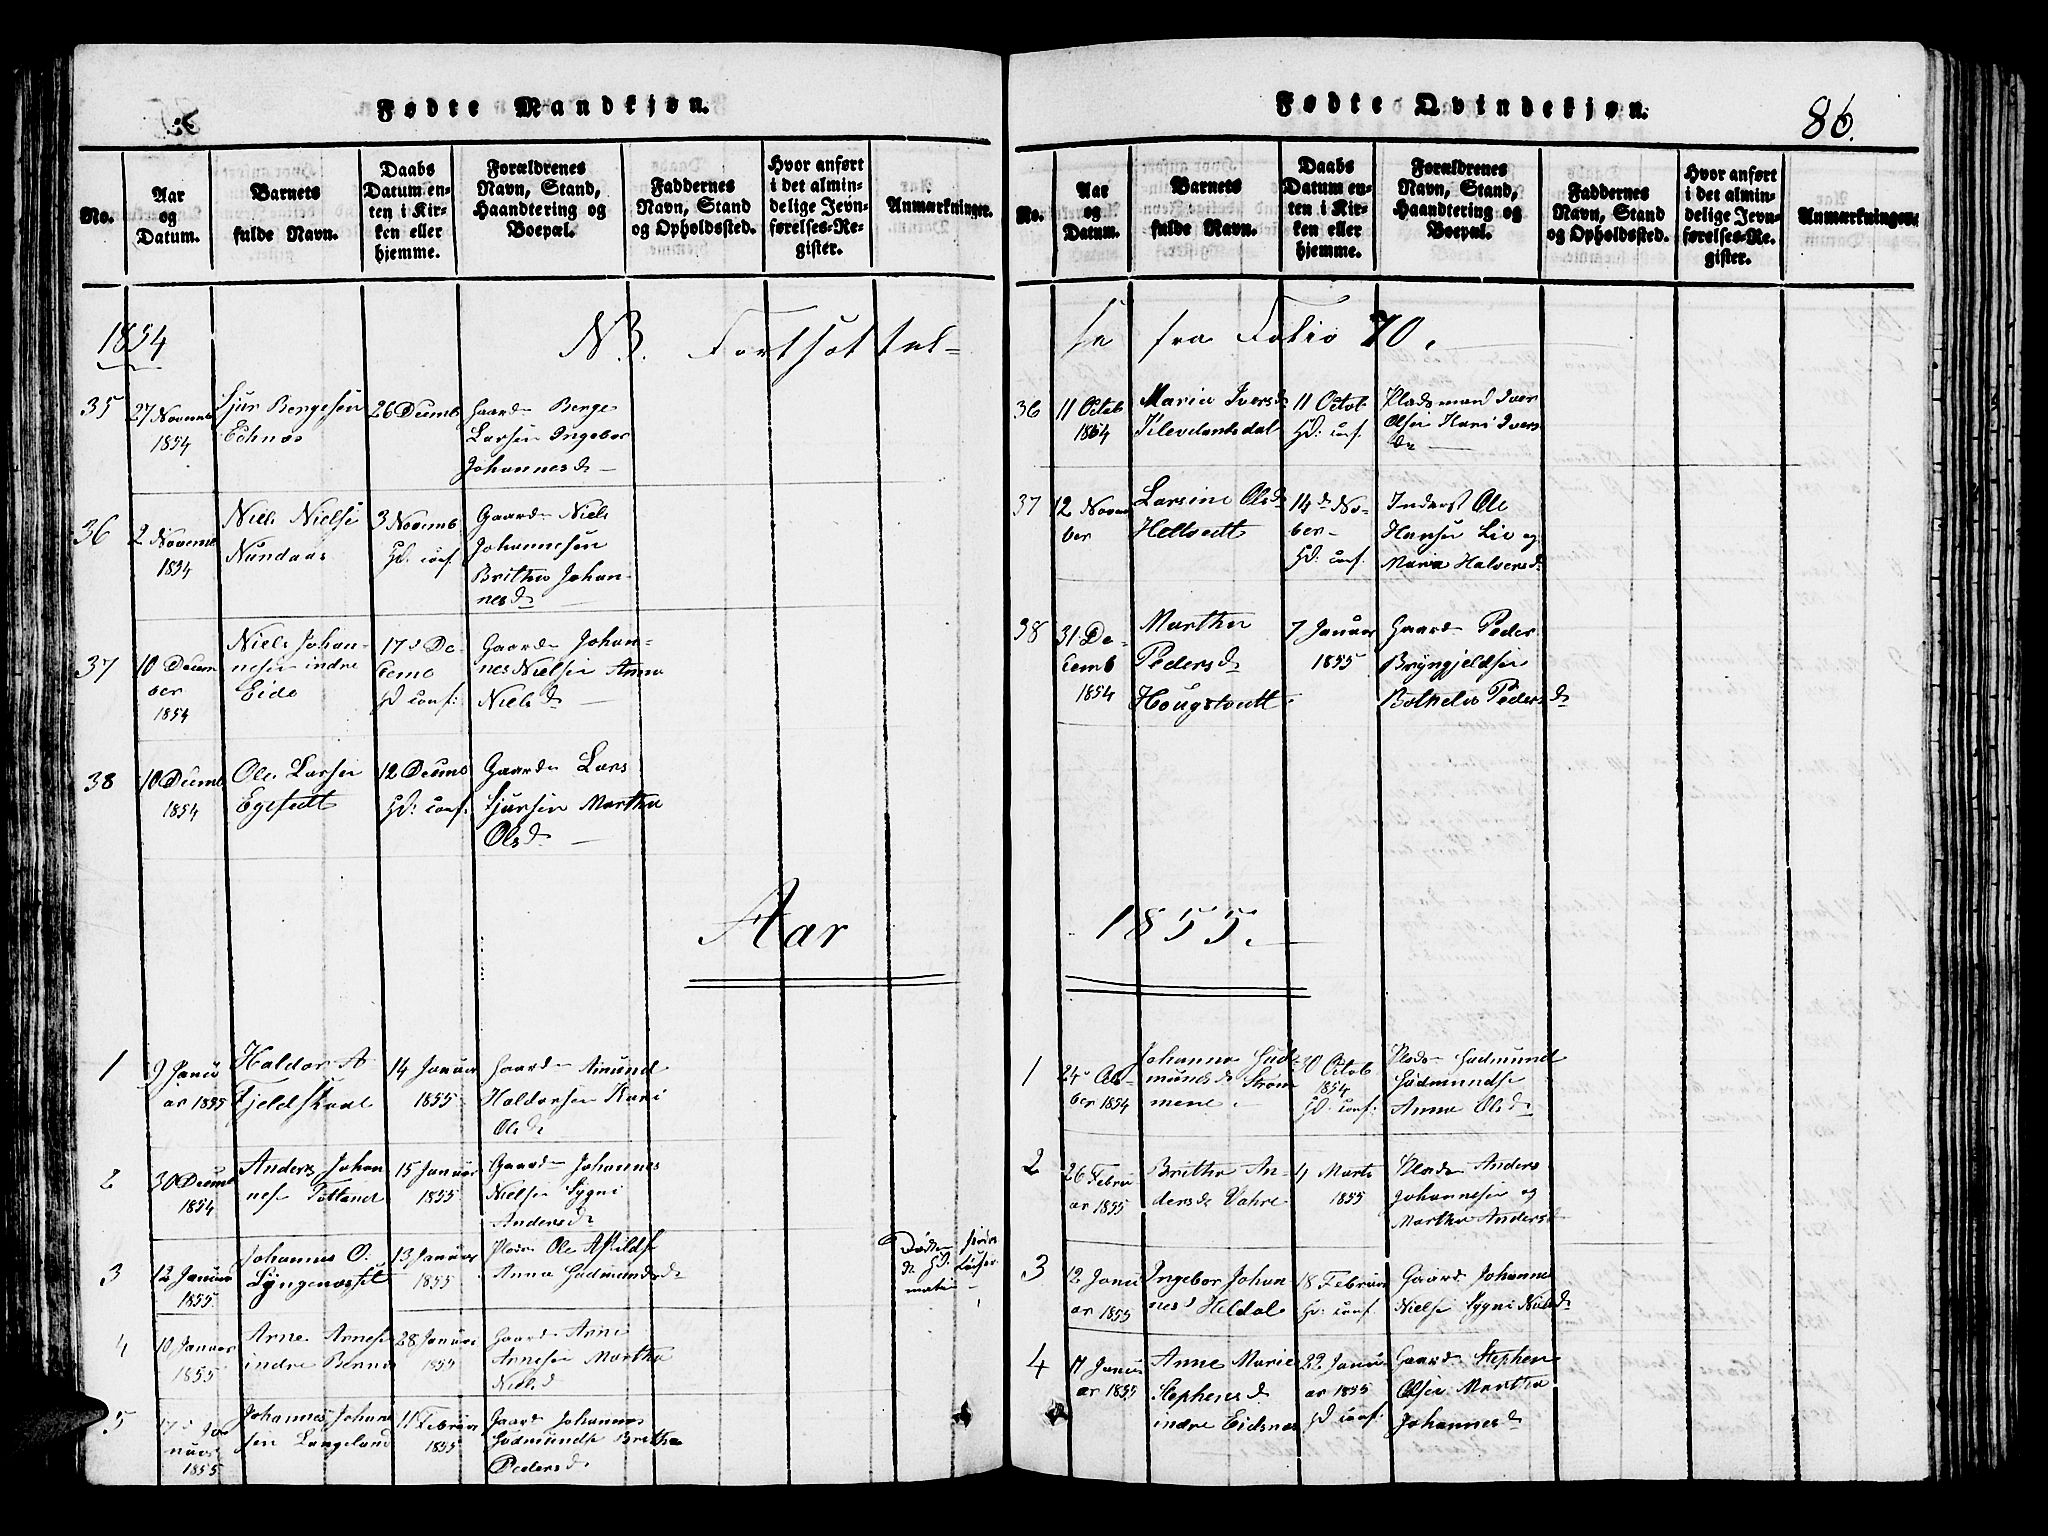 Fødte Mandkjøn.
No.
Aar
og
Datum.
Barnets
fulde Navn.
Daabs
Datum en-
ten i Kir-
ken eller
hjemme.
Forældrenes
Navn, Stand,
Haandtering og
Boepæl.
Faddernes
Navn, Stand
og Opholdssted.
Hvor anført
i det almin-
delige Jevn-
førelses-Re-
gister.
Anmærkninger.
1854
N.B. Fortsættel=
35
27 Novemb
1854
Sjur Bergesen
Echnæs
26 Decemb
Gaardm Berge
Larsen Ingebor
Johannesd
36
2 Novemb
1854
Niels Nielse
Nundaas
3 Novemb
Hd: conf.
Gaardm Niels
Johannesen
Britha Johan-
nesd
37
10 Decem
ber
1854
Niels Johan-
nesen indre
Eide
17d De-
cemb
Hd conf:
Gaardm Johan-
nes Nielsen Anna
Nielsd
38
10 Decemb
1854
Ole Larsen
Egetvedt
12 Decemb
Hd: conf:
Gaardm Lars
Sjursen Martha
Olsd
Aar
1
9 Janu
ar 1855
Haldor A
Fjeldskaal
14 Januar
1855
Gaardm Amund
Haldorsen Kari
Olsd
2
30 Decemb
1854
Anders Johan
nes Totland
15 Januar
1855
Gaardm Johannes
Nielsen Sygni
Andersd
3
12 Januar
1855
Johannes O.
Lyngenæsset
13 Januar
1855
Pladsm Ole Askildse
Anna Gudmundsd
4
10 Januar
1855
Arne Arnese
indre Bernæs
28 Januar
Gaardm Arne
Arnesen Martha
Nielsd
5
17d Ja
nuar
1855
Johannes Johan
sen Langeland
11 Februar
1855
Gaardm Johannes
Gudmundse Britha
Pedersd
Fødte Qvindekjøn.
86.
No.
Aar
og
Datum.
Barnets
fulde Navn.
Daabs
Datum en-
ten i Kir-
ken eller
hjemme.
Forældrenes
Navn, Stand,
Haandtering og
Boepæl.
Faddernes
Navn, Stand
og Opholdssted.
Hvor anført
i det almin-
delige Jevn-
førelses-Re-
gister.
Anmærkninger.
se fra Folio 70.
36
11 Octob
1854
Maria Iversd
Klevelandsdal
11 Octob
Hd: conf.
Pladsmand Iver
Olsen Kari Ivers
d
37
12 Novem
ber
Larsine Olsd
Hellvedt
14d No-
ber
Hd: conf.
Inderst Ole
Hansen Lie og
Maria Halversd
38
31 De-
cemb
1854
Martha
Pedersd
Hougstvedt
7 Januar
1855
Gaardm Peder
Bryngjeldsen
Bothelie Pedersd
1855.
1
24 Oc-
ber 1854
Johanna Gud-
mundsd Strøm
mene
30 Octob
1854
Hd: conf:
Pladsm Gudmund
Gudmundse
Anna Olsd
2
26 Febru
ar 1855
Britha An-
dersd Vahre
4 Marts
1855
Pladsm Anders
Johannesen og
Martha Andersd
3
12 Janu
ar 1855
Ingebor Johan
nesd Heldal
18 Februar
Hd: conf.
Gaardm Johanne
Nielse Sygni Nielsd
4
17 Janu
ar 1855
Anne Marie
Stephensd
indre Eidsnæs
22 Janu
ar 1855
Hd conf:
Gaardm Stephen
Olsen Martha
Johannesd